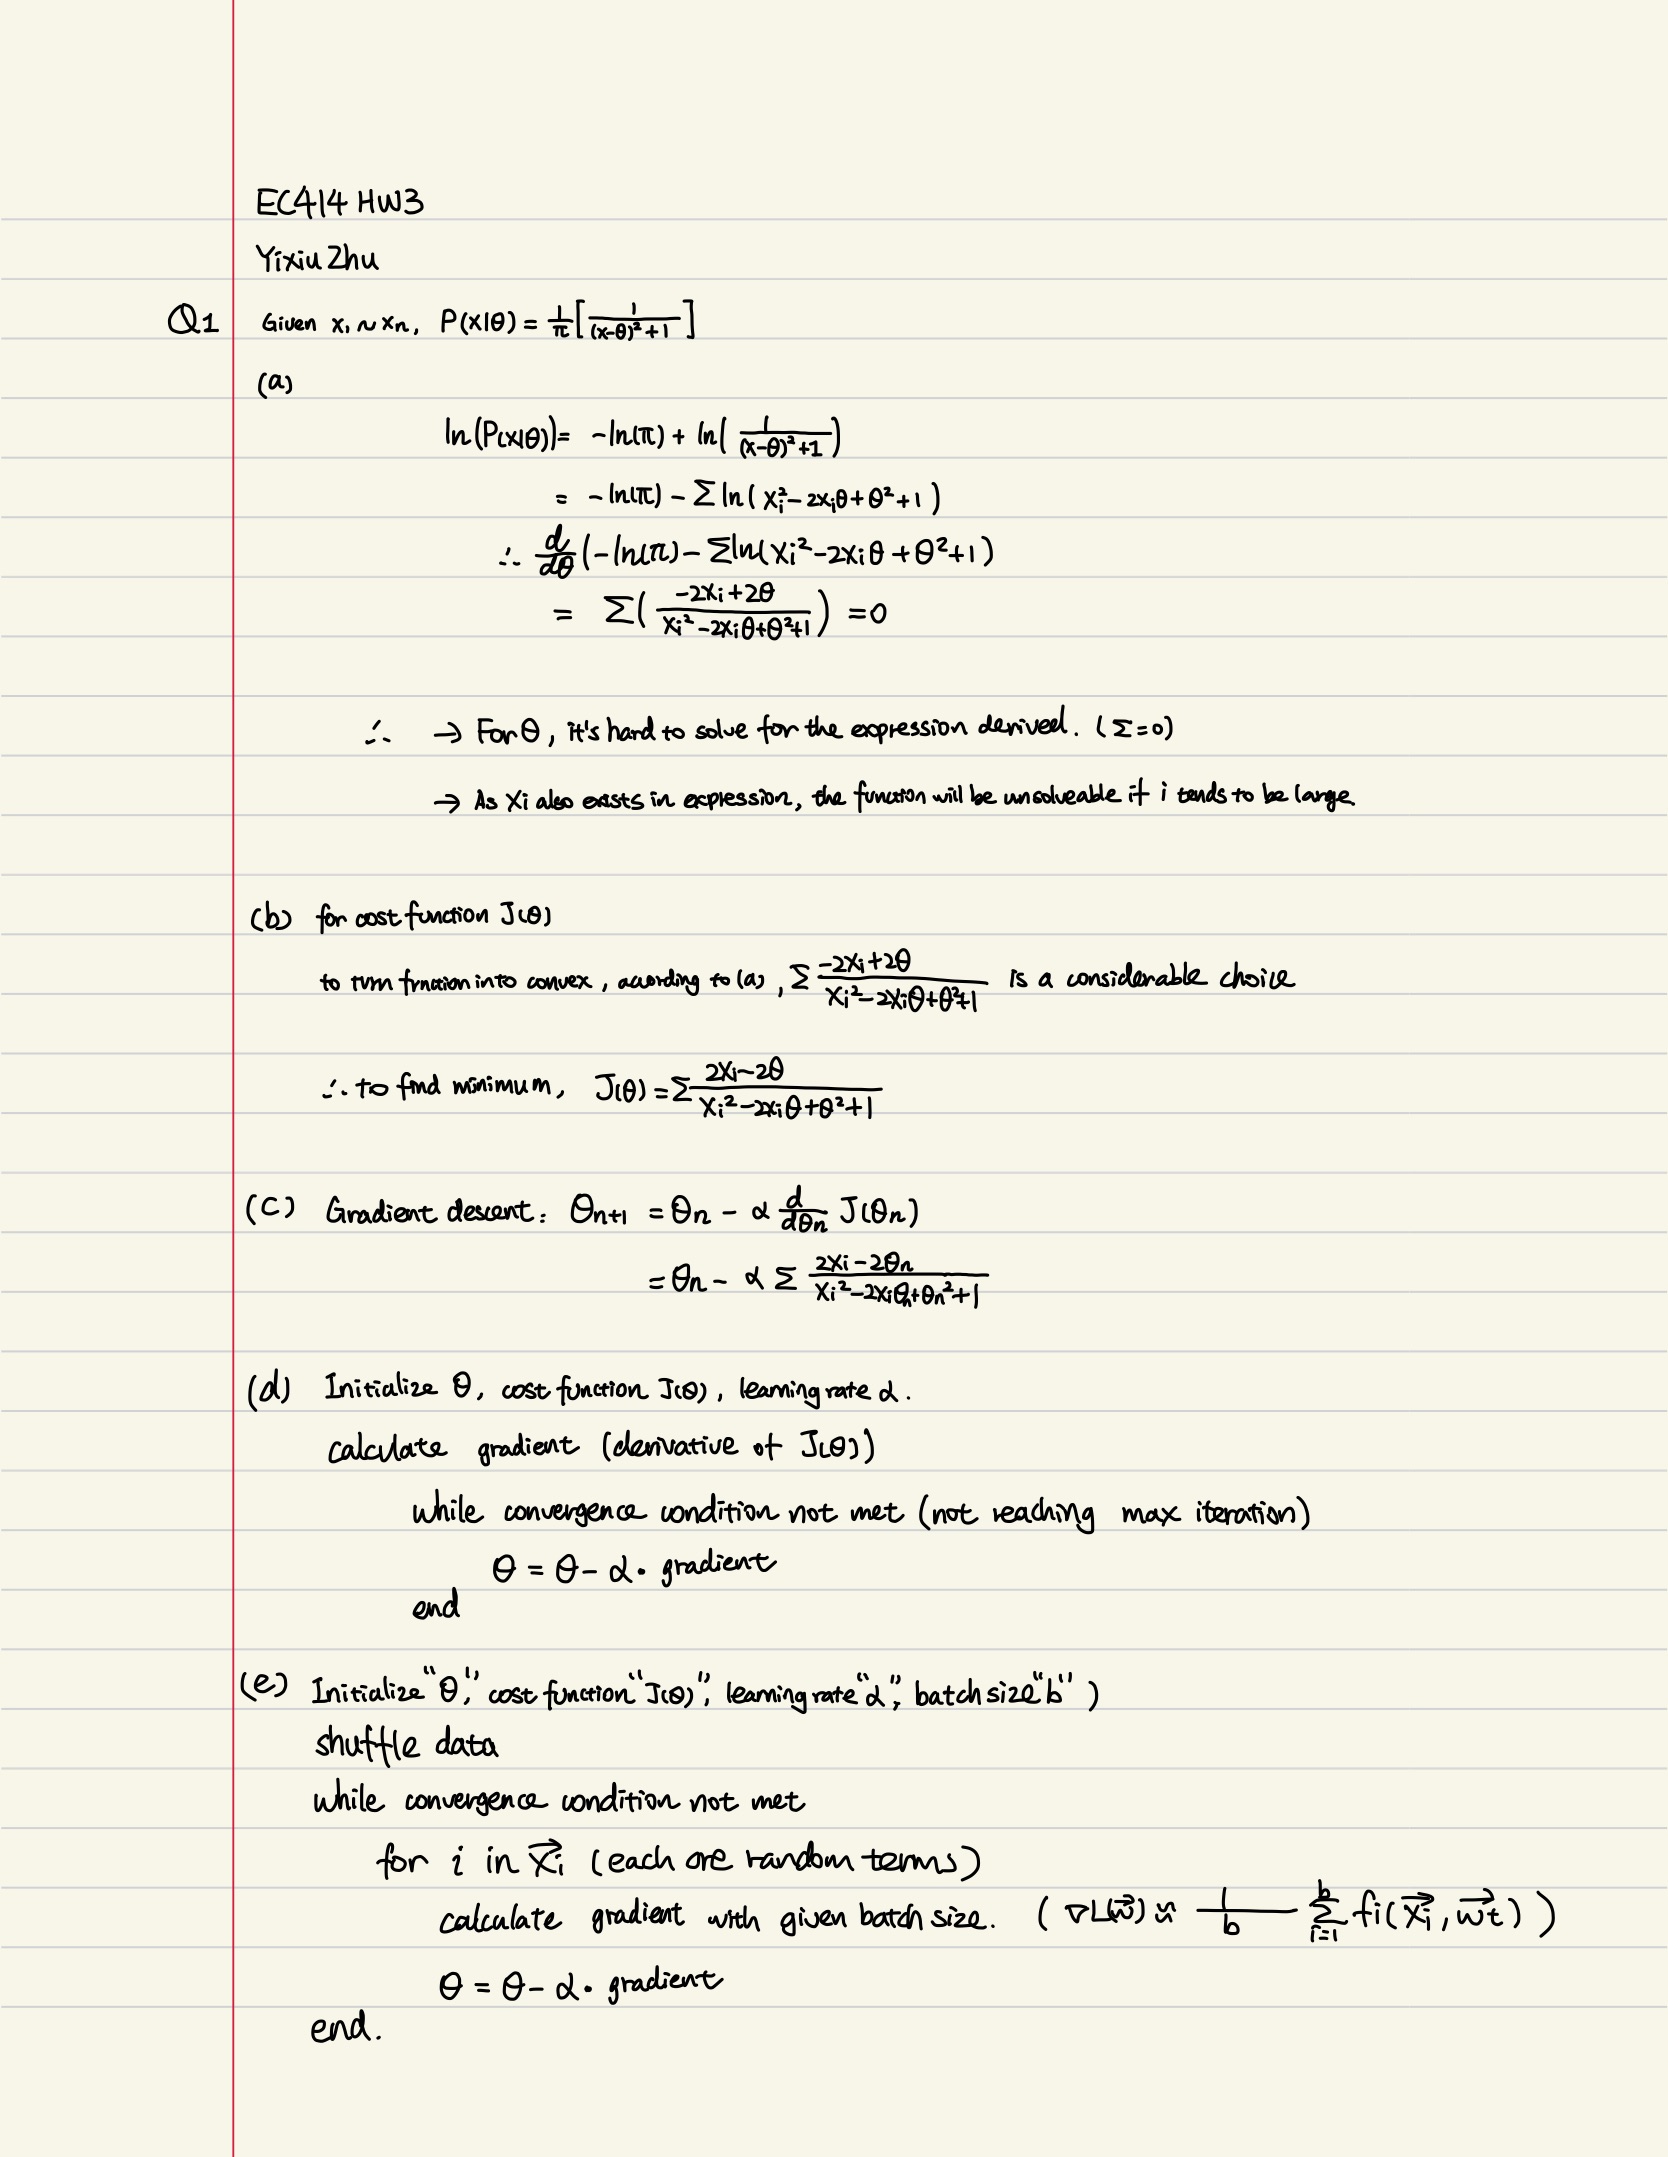 EC414 HW3
Yixiu Zhu
Q1 Given x₁ ~ xn, P(x|θ) = 1/π [ 1/((x-θ)²+1) ]
(a)
ln(P(x|θ)) = -ln(π) + ln( 1/((x-θ)²+1) )
= -ln(π) - Σ ln( xi² - 2xiθ + θ² + 1 )
∴ d/dθ (-ln(π) - Σln( xi² - 2xiθ + θ² + 1 )
= Σ( (-2xi+2θ)/(xi² - 2xiθ+θ²+1) ) = 0
∴ → For θ, it's hard to solve for the expression derived. (Σ=0)
→ As xi also exists in expression, the function will be unsolveable if i tends to be large.
(b) for cost function J(θ)
to turn function into convex, acording to (a), Σ (-2xi+2θ)/(xi²-2xiθ+θ²+1) is a considerable choice
∴ to find minimum, J(θ) = Σ (2xi-2θ)/(xi²-2xiθ+θ²+1)
(c) Gradient descent: θn+1 = θn - α d/dθn J(θn)
= θn - α Σ (2xi-2θn)/(xi²-2xiθn+θn²+1)
(d) Initialize θ, cost function J(θ), learning rate α.
calculate gradient (derivative of J(θ))
while convergence condition not met (not reaching max iteration)
θ = θ - α · gradient
end
(e) Initialize "θ", cost function "J(θ)", learning rate "α", batch size "b" )
shuffle data
while convergence condition not met
for i in x⃗i (each are random terms)
calculate gradient with given batch size. ( ∇L(w⃗) ≈ 1/b Σ_{i=1}^{b} fi(x⃗i, w⃗t) )
θ = θ - α · gradient
end.